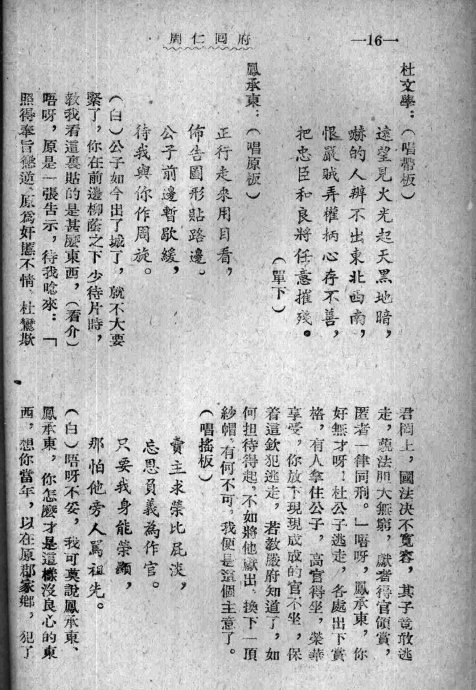 周仁回府
—16—
杜文學:(唱帶板)
遠望見火光起天黑地暗,
嚇的人辦不出東北西南,
恨嚴賊弄權柄心存不善,
把忠臣和良將任意摧殘。
(單下)
鳳承東:(唱原板)
正行走來用目看,
佈告圖形貼路邊。
公子前邊暫歇緩,
待我與你作周旋。
(白)公子如今出了城了,就不大要
緊了,你在前邊柳蔭之下少待片時,
教我看這裏貼的是甚麽東西,(看介)
唔呀,原是一張告示,待我唸來:「
照得奉旨懲逆,原爲奸慝不情,杜鸞欺
君罔上,國法决不寬容,其子竟敢逃
走,藐法胆大無窮,獻者得官領賞,
匿者一律同刑。」唔呀,鳳承東,你
好無才呀!杜公子逃走,各處出下賞
格,有人拿住公子,高官得坐,榮華
享受,你放下現現成成的官不坐,保
着這欽犯逃走,若教嚴府知道了,如
何担待得起,不如將他獻出,換下一頂
紗帽,有何不可,我便是這個主意了。
(唱搖板)
賣主求榮比屁淡,
忘恩負義為作官。
只要我身能榮顯,
那怕他旁人駡祖先。
(白)唔呀不妥,我可莫說鳳承東、
鳳承東,你怎麽才是這樣沒良心的東
西,想你當年,以在原郡家鄉,犯了